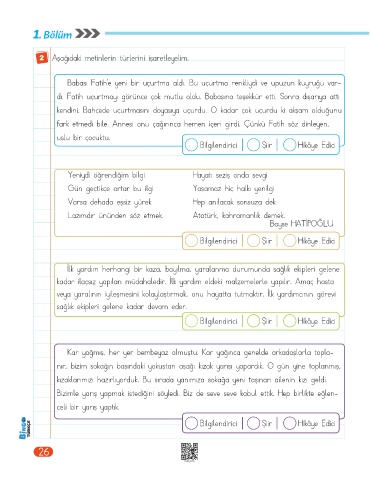 1. Bölüm
2 Aşağıdaki metinlerin türlerini işaretleyelim.
Babası Fatih'e yeni bir uçurtma aldı. Bu uçurtma renkliydi ve upuzun kuyruğu var-
dı. Fatih uçurtmayı görünce çok mutlu oldu. Babasına teşekkür etti. Sonra dışarıya attı
kendini. Bahçede uçurtmasını doyasıya uçurdu. O kadar çok uçurdu ki akşam olduğunu
fark etmedi bile. Annesi onu çağırınca hemen içeri girdi. Çünkü Fatih söz dinleyen,
uslu bir çocuktu.
Bilgilendirici Şiir Hikâye Edici
Yeniydi öğrendiğim bilgi
Gün geçtikçe artar bu ilgi
Varsa dehada eşsiz yürek
Lazımdır ününden söz etmek.
Hayatı seziş onda sevgi
Yaşamaz hiç halkı yenilgi
Hep anılacak sonsuza dek
Atatürk, kahramanlık demek.
Bayse HATİPOĞLU
Bilgilendirici Şiir Hikâye Edici
İlk yardım herhangi bir kaza, bayılma, yaralanma durumunda sağlık ekipleri gelene
kadar ilaçsız yapılan müdahaledir. İlk yardım eldeki malzemelerle yapılır. Amaç hasta
veya yaralının iyileşmesini kolaylaştırmak, onu hayatta tutmaktır. İlk yardımcının görevi
sağlık ekipleri gelene kadar devam eder.
Bilgilendirici Şiir Hikâye Edici
Kar yağmış, her yer bembeyaz olmuştu. Kar yağınca genelde arkadaşlarla topla-
nır, bizim sokağın başındaki yokuştan aşağı kızak yarışı yapardık. O gün yine toplanmış,
kızaklarımızı hazırlıyorduk. Bu sırada yanımıza sokağa yeni taşınan ailenin kızı geldi.
Bizimle yarış yapmak istediğini söyledi. Biz de seve seve kabul ettik. Hep birlikte eğlen-
celi bir yarış yaptık.
Bilgilendirici Şiir Hikâye Edici
BİNGO
TÜRKÇE
26